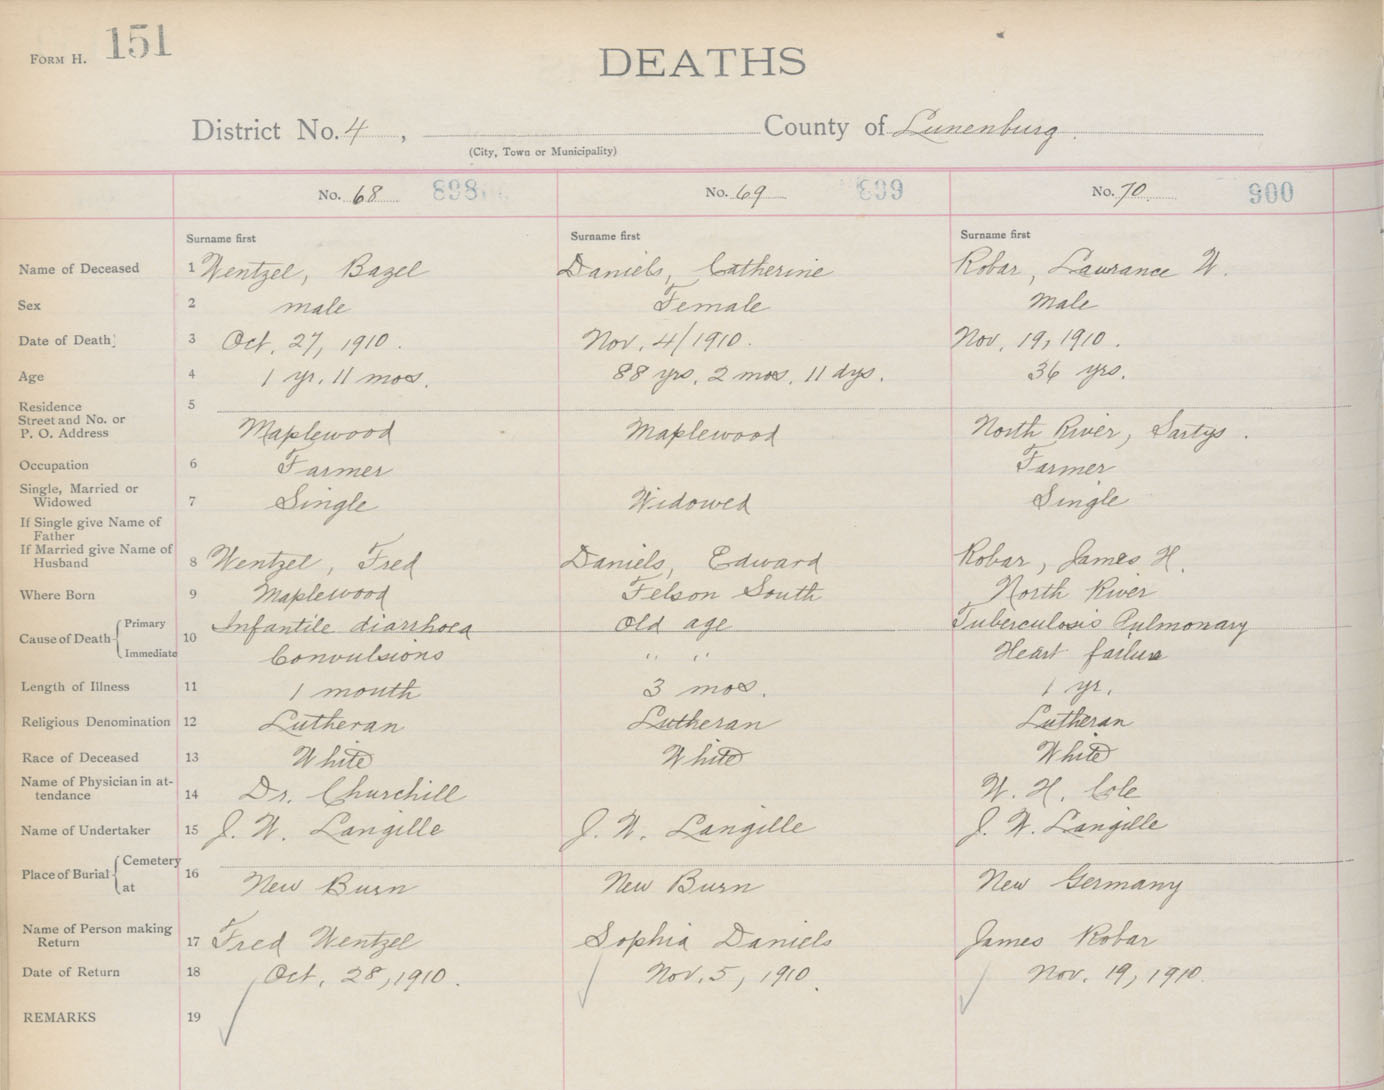 FORM H. 151
DEATHS
District No. 4 , County of Lunenburg
(City, Town or Municipality)
No. 68 898 No. 69 899 No. 70 900
Surname first Surname first Surname first
Name of Deceased 1 Wentzel, Bazel Daniels, Catherine Robar, Laurance W.
Sex 2 male Female Male
Date of Death 3 Oct. 27, 1910. Nov. 4/1910. Nov. 19, 1910.
Age 4 1 yr. 11 mos. 88 yrs. 2 mos. 11 dys. 36 yrs.
Residence 5
Street and No. or
P. O. Address Maplewood Maplewood North River, Sartys.
Occupation 6 Farmer Farmer
Single, Married or
Widowed 7 Single Widowed Single
If Single give Name of
Father
If Married give Name of
Husband 8 Wentzel, Fred Daniels, Edward Robar, James H.
Where Born 9 Maplewood Felson South North River
Cause of Death Primary 10 Infantile diarrhoea Old age Tuberculosis Pulmonary
Immediate Convulsions " " Heart failure
Length of Illness 11 1 month 3 mos. 1 yr.
Religious Denomination 12 Lutheran Lutheran Lutheran
Race of Deceased 13 White White White
Name of Physician in at-
tendance 14 Dr. Churchill W. H. Cole
Name of Undertaker 15 J. W. Langille J. W. Langille J. W. Langille
Place of Burial Cemetery 16
at New Burn New Burn New Germany
Name of Person making
Return 17 Fred Wentzel Sophia Daniels James Robar
Date of Return 18 Oct. 28, 1910. Nov. 5, 1910. Nov. 19, 1910
REMARKS 19